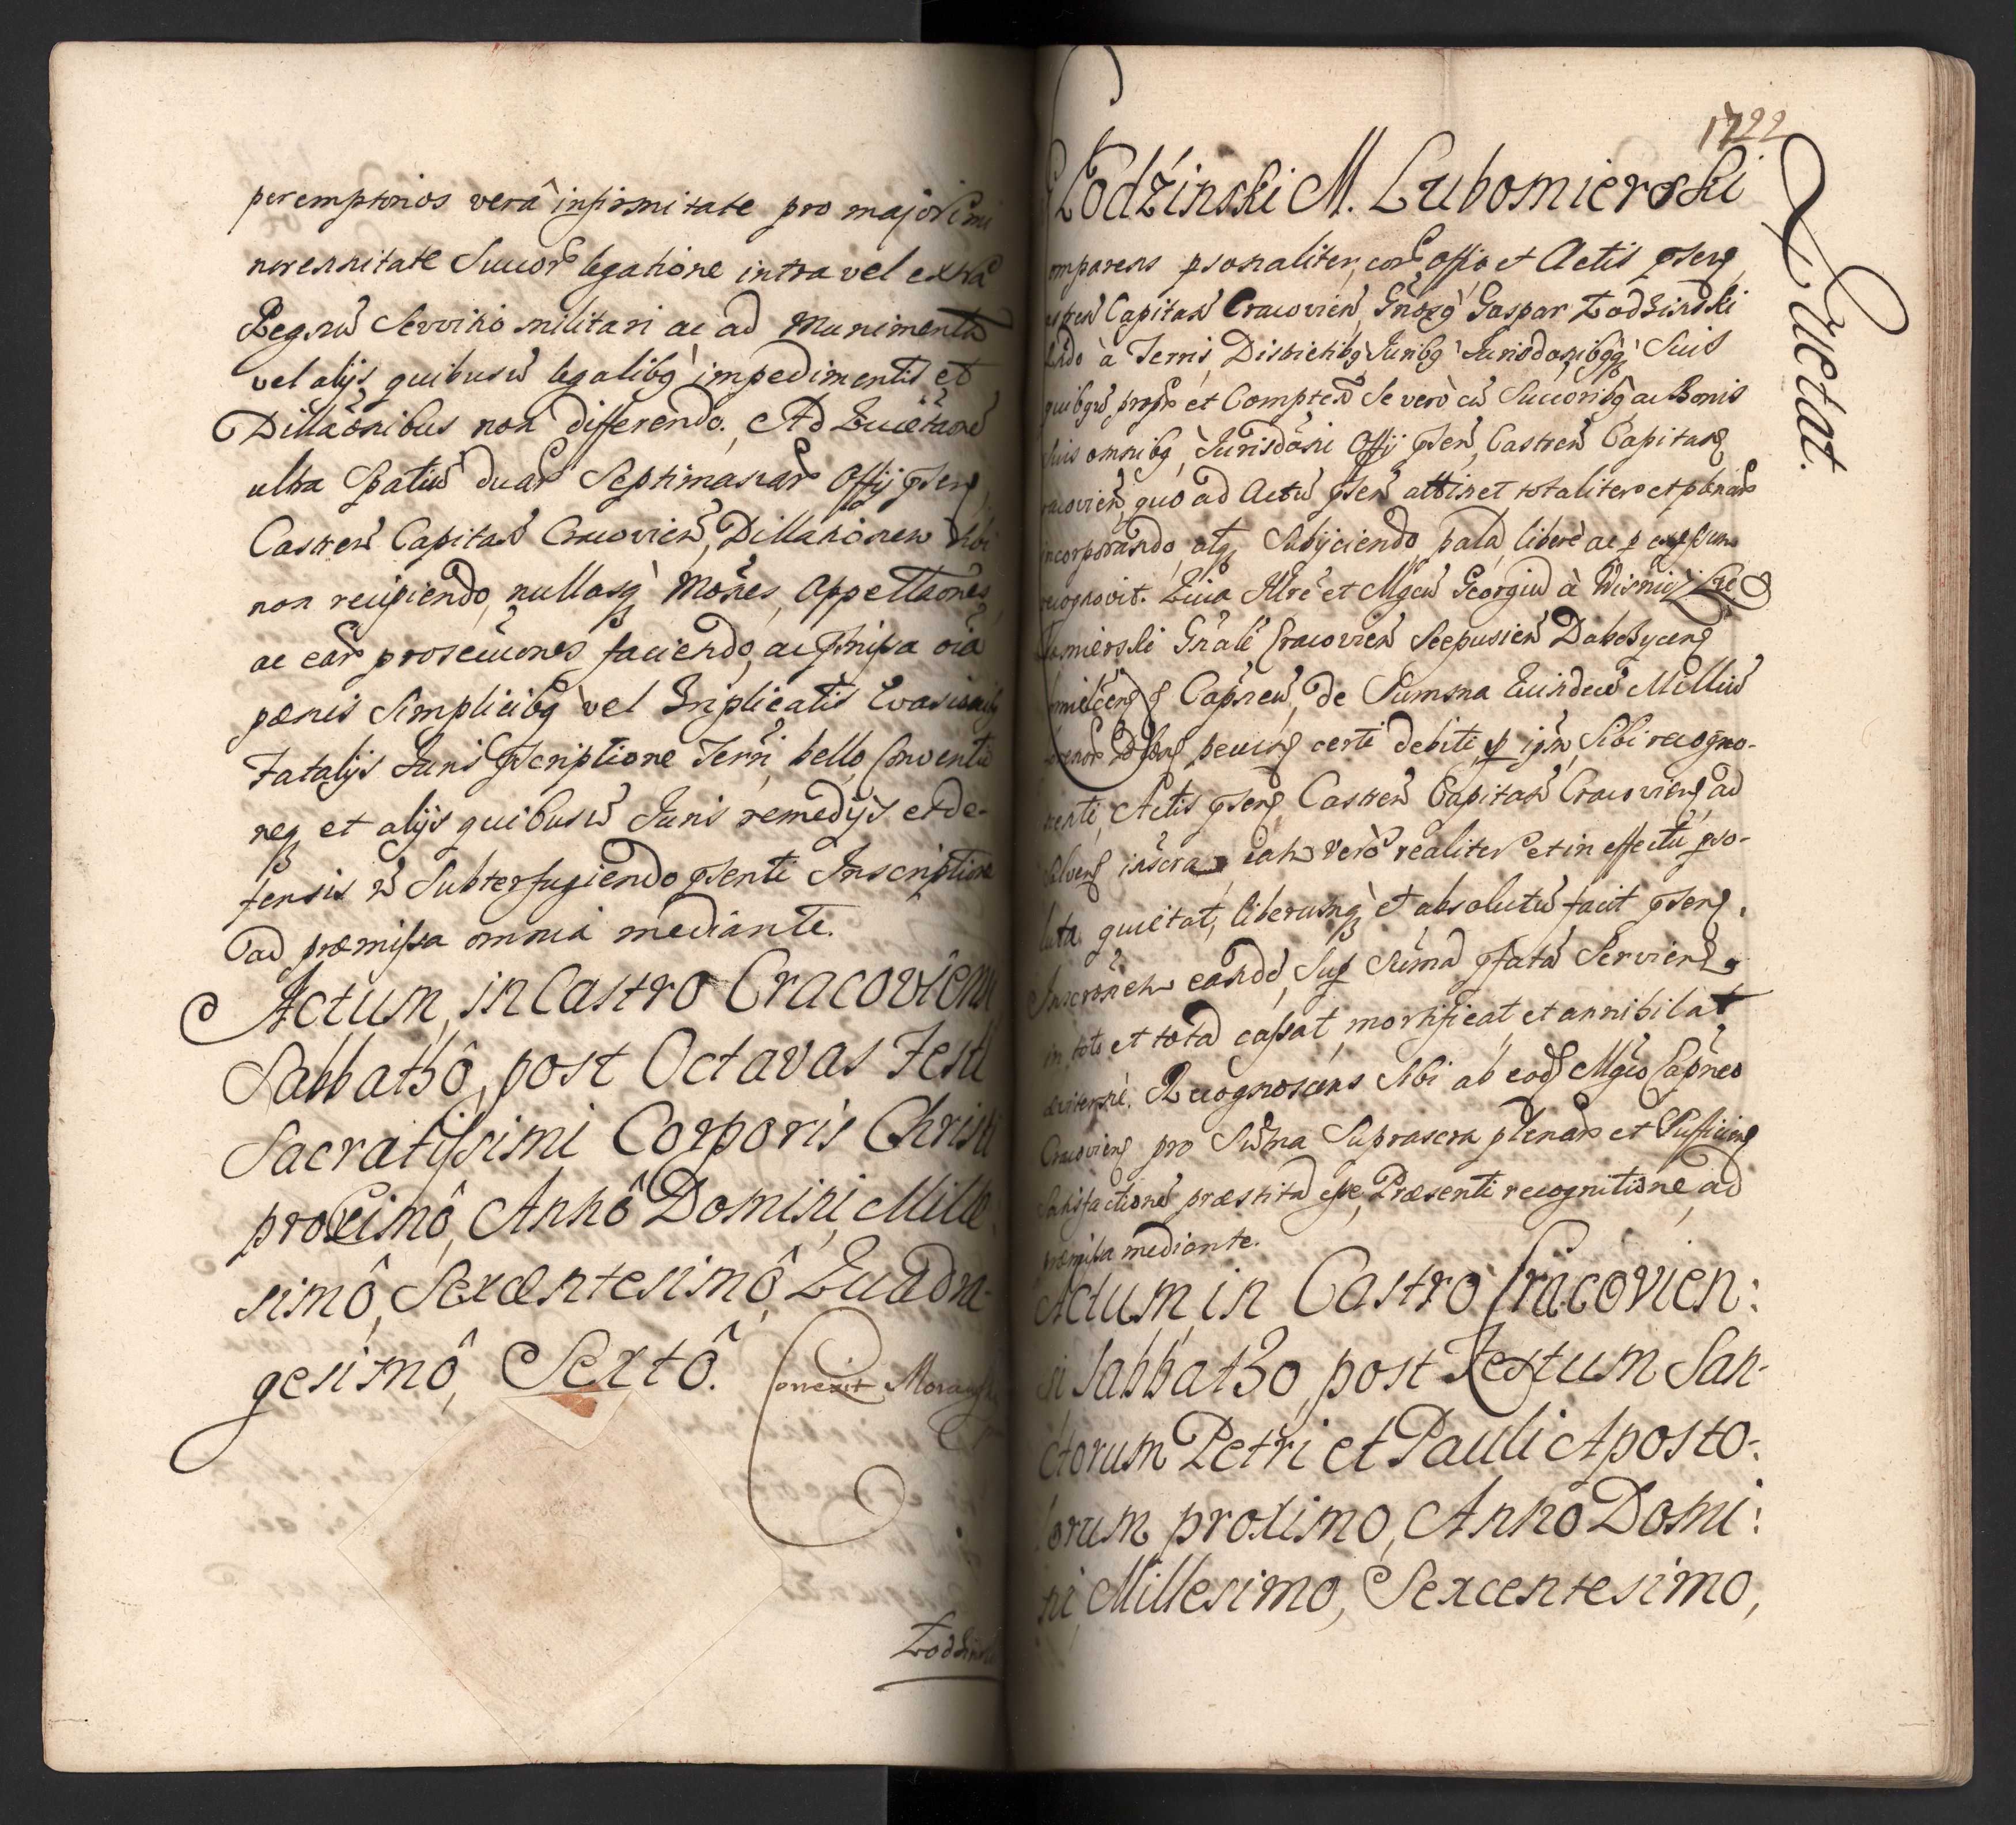 peremptorios verâ infirmitate pro majori
necessitate Succor legatione intra vel extra
Regnũ Servitio militari ac ad Munimenta
vel alijs quibusũ legalibq impedimentis et
Dillaõnibus non differendo. Ad
ultra Spatiũ duar Septimanar Offij pñsen
Castren Capitan Cracovien, Dillationem
non recipiendo, nullasq Mões, Appellaões,
ac ear prosecuones faciendo, ac pmissa oia
pænis Simplicibq vel Triplicatis Evasionibq
Fatalijs Juris pscriptione Terri, bello, Conventu
neq et alijs quibusũ Juris remedijs et de-
fensis ñ Subterfugiendo psenti Inscriptione
ad præmissa omnia mediante.
Actum, in Castro Cracoviens
Sabbathô, post Octavas Festi
Sacratissimi Corporis Christi
proximô, Annô Domini, Mille
simô, Sexcentesimô, Quadra-
gesimô, Sextô.
Correxit
Łodzinski
1722
Łodźinski M. Lubomierski
Quietat.
omparens psonaliter, cor Offio et Actis psen
Capitan Cracovien, Gnosq Gaspar Łodzinski
à Terris, Districtibq Juribq Jurisdonibqq Suis
quibqũ propr et Competen Se verò cũ Succoribq ac Bonis
suis omnibq, Jurisdõni Offij psen, Castren Capitan
racovien, quo ad Actũ psen attinet totaliter et plenar
incorporando, atq Subijciendo, palã, liberè ac p expressum
recognovit. Quia Illre et Mgcũ Georgiũ à Wisnicz Lu
bomierski Gñale Cracovien Scepusien Dobczycen
Capneũ, de Summa Eiusdem Milliũ
pecun certi debiti, p ipm, Sibi recogno-
scenti, Actis psen, Castren Capitan Cracovien, ad
solven inscra iah verò realiter et in effectu pso-
luta quietat, liberumq et absolutũ facit psen.
Inscronem eandẽ, Sup Sũmã pfatã Servien
in toto et totã cassat, mortificat et annihilat
Recognoscens Sibi ab eod Mgco Capneo
Cracovien pro Sũma Suprascra plenar et Sufficien
Satisfactionẽ præstitã esse, Præsenti recognitione, ad
præmissa mediante.
Actum, in Castro Cracovien:
si Sabbatho post Festum San-
ctorum Petri et Pauli Aposto-
lorum proximo, Anno Domi:
ni, Millesimo, Sexcentesimo,